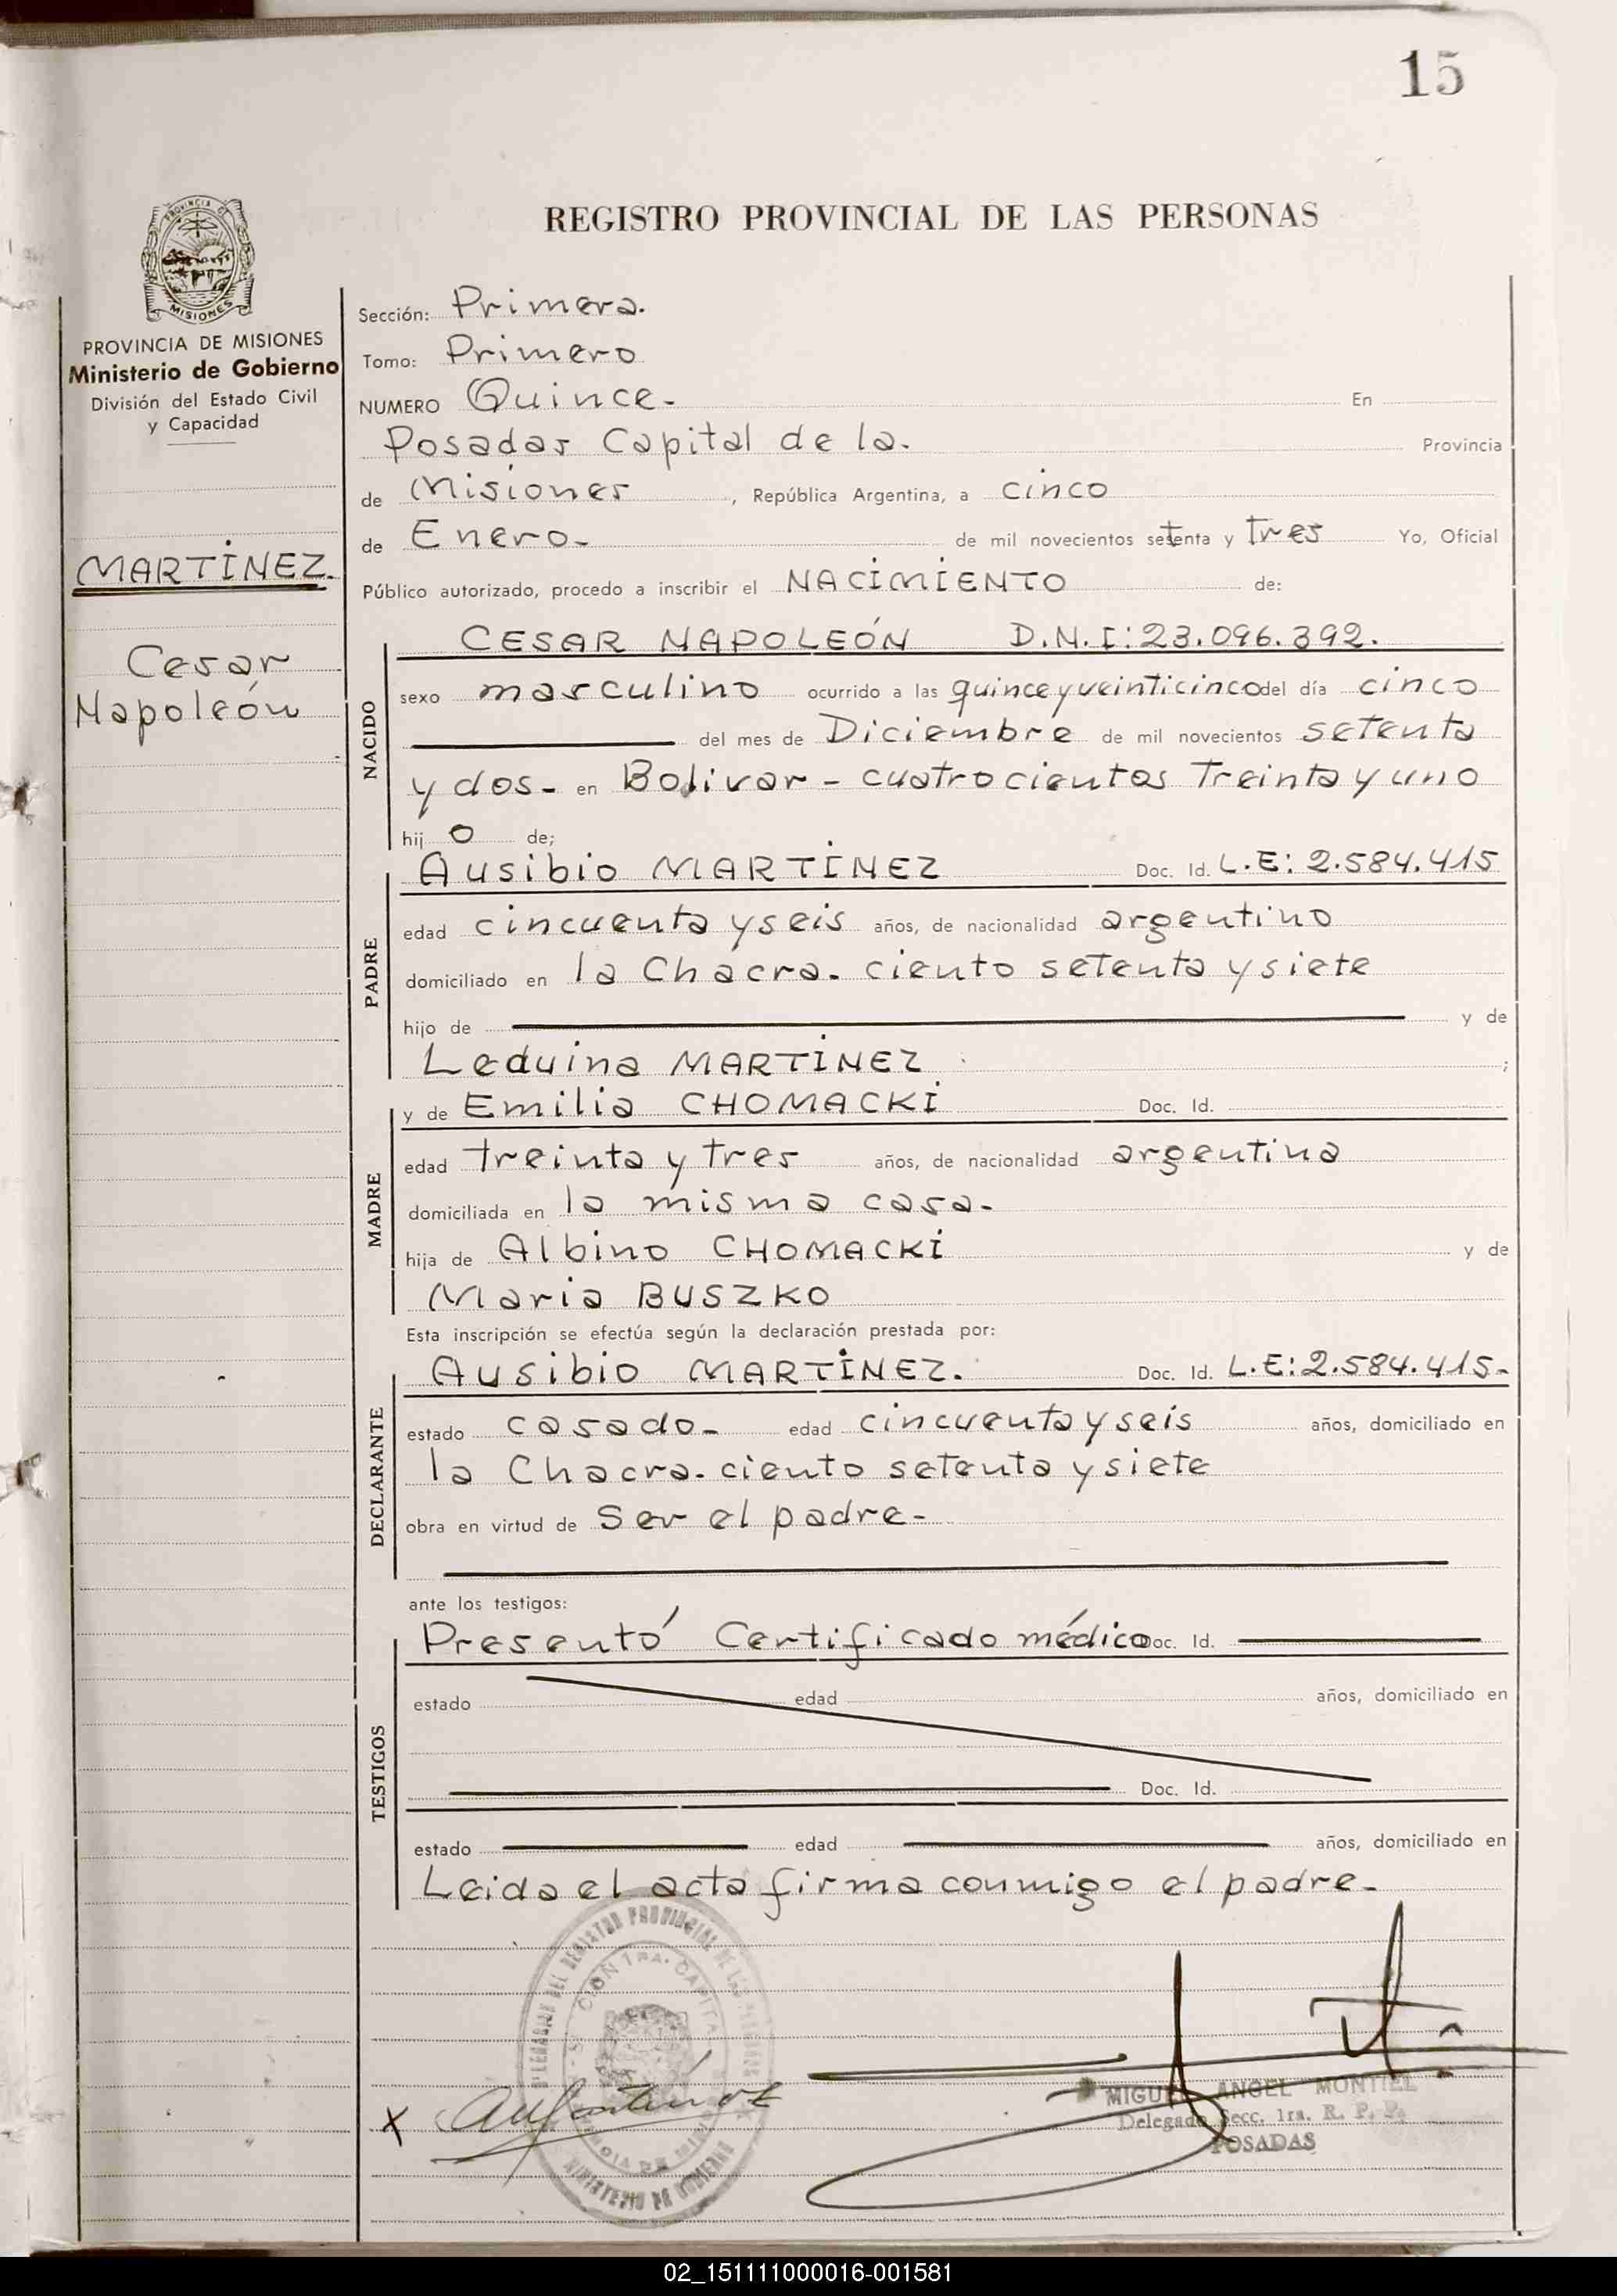 15
REGISTRO PROVINCIAL DE LAS PERSONAS
PROVINCIA DE
MISIONES
PROVINCIA DE MISIONES
Ministerio de Gobierno
División del Estado Civil
y Capacidad
MARTINEZ.
Cesar
Napoleón
Sección: Primera.
Tomo: Primero
NUMERO Quince. En
Posadas Capital de la. Provincia
de Misiones, República Argentina, a cinco
de Enero. de mil novecientos setenta y tres Yo, Oficial
Público autorizado, procedo a inscribir el NACIMIENTO de:
NACIDO
CESAR NAPOLEÓN D.N.I:23.096.392.
sexo masculino ocurrido a las quince y veinticinco del día cinco
del mes de Diciembre de mil novecientos setenta
y dos- en Bolivar - cuatrocientos Treinta y uno
hij o de;
PADRE
Ausibio MARTINEZ Doc. Id. L.E: 2.584.415
edad cincuenta y seis años, de nacionalidad argentino
domiciliado en la Chacra. ciento setenta y siete
hijo de y de
Leduina MARTINEZ ;
MADRE
y de Emilia CHOMACKI Doc. Id.
edad treinta y tres años, de nacionalidad argentina
domiciliada en la misma casa.
hija de Albino CHOMACKI y de
Maria BUSZKO
Esta inscripción se efectúa según la declaración prestada por:
DECLARANTE
Ausibio MARTINEZ. Doc. Id. L.E:2.584.415-
estado casado- edad cincuenta y seis años, domiciliado en
la Chacra. ciento setenta y siete
obra en virtud de Ser el padre-
ante los testigos:
TESTIGOS
Presentó Certificado médico Doc. Id.
estado edad años, domiciliado en
Doc. Id.
estado edad años, domiciliado en
Leida el acta firma conmigo el padre-
DELEGACION DEL REGISTRO PROVINCIAL DE LAS PERSONAS
MINISTERIO DE GOBIERNO
X
MIGUEL ANGEL MONTIEL
Delegado Secc. 1ra. R. P. P.
POSADAS
02_151111000016-001581